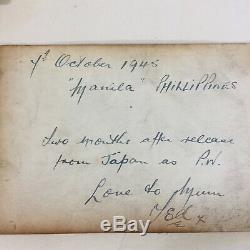 October 1945
"Manila" PHILLIPPINES
Two months after release
from Japan as P.W.
Love to
x